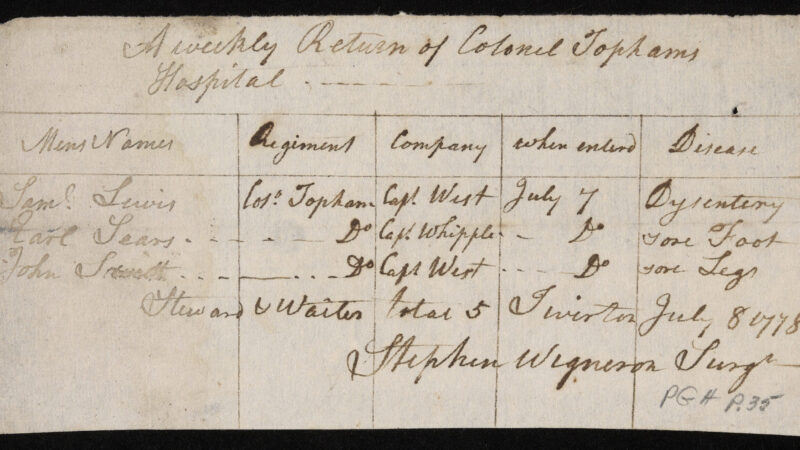 A weekly Return of Colonel Tophams
Hospital
Mens Names Regiment Company when enterd Disease
Saml. Lewis Cos. Topham Capt. West July 7 Dysentery
Earl Sears Do Capt. Whipple Do sore Foot
John Do Capt West Do sore Legs
Steward & Waiter total 5 Tiverton July 8 1778
Stephen Wigneron Surgn
PGH P.35